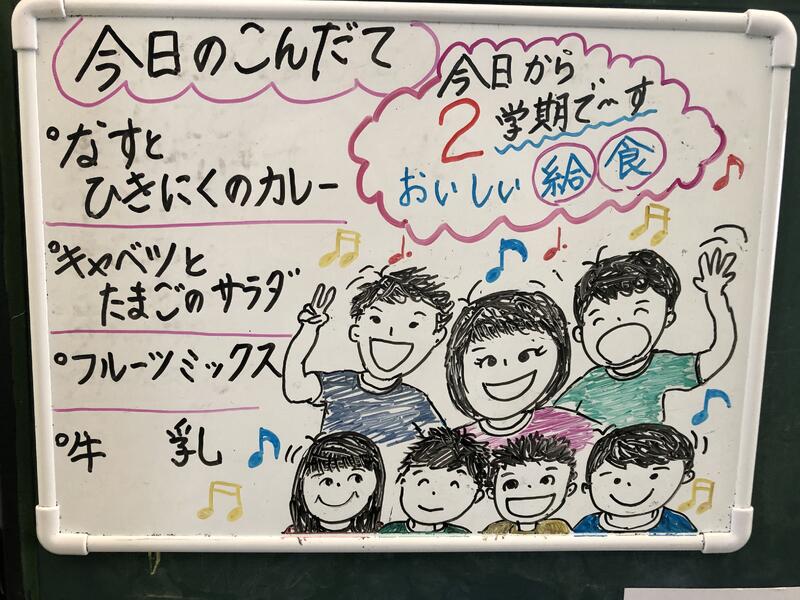 今日のこんだて
今日から
2学期で〜す
おいしい給食
°なすと
ひきにくのカレー
°キャベツと
たまごのサラダ
°フルーツミックス
°牛 乳